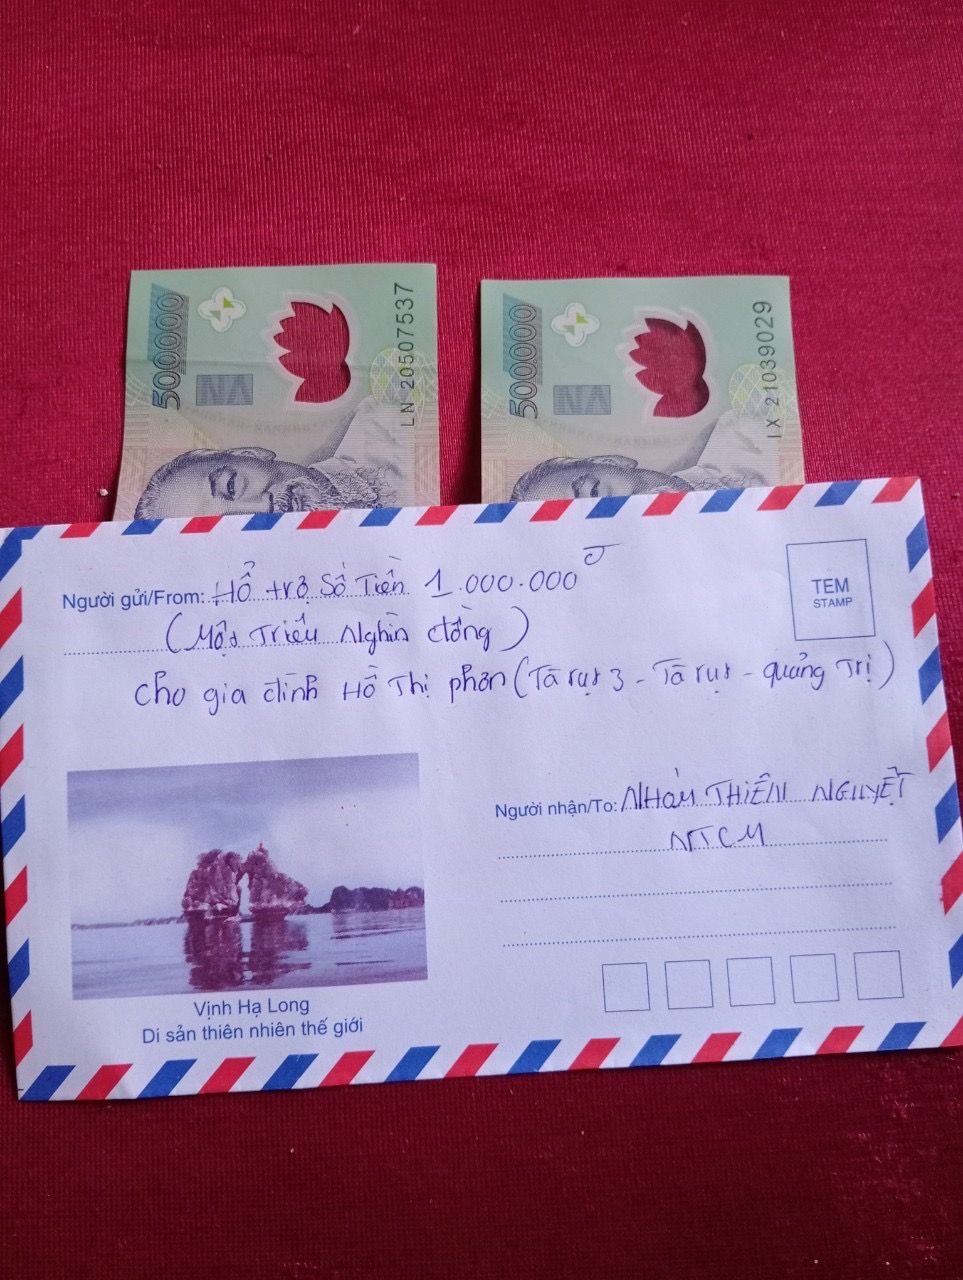 500000
VN
LN 20507537
500000
VN
IX 21039029
Người gửi/From: Hổ trợ Số Tiền 1.000.000đ
(Một Triệu Nghìn đồng)
cho gia đình Hồ Thị phơn (Tà rụt 3 - Tà rụt - quảng Trị)
TEM
STAMP
Người nhận/To: NHóm THIÊN NGUYỆT
NTCM
Vịnh Hạ Long
Di sản thiên nhiên thế giới